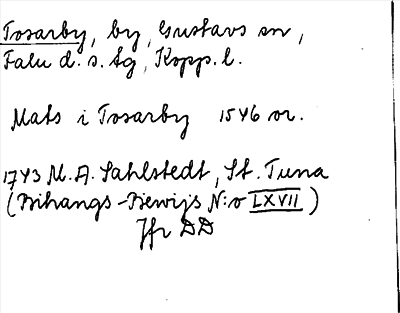 Tosarby, by, Gustavs sn,
Falu d. s. tg, Kopp. l.
Mats i Tosarby 1546 or.
1743 M. A. Sahlstedt, St. Tuna
(Bihangs-Bewijs N:o LXVII)
Jfr DD